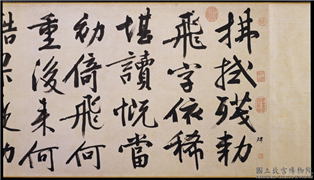 拂拭殘勅碑
飛字依稀
堪讀慨當
初倚飛何
重後來何
國立故宮博物院